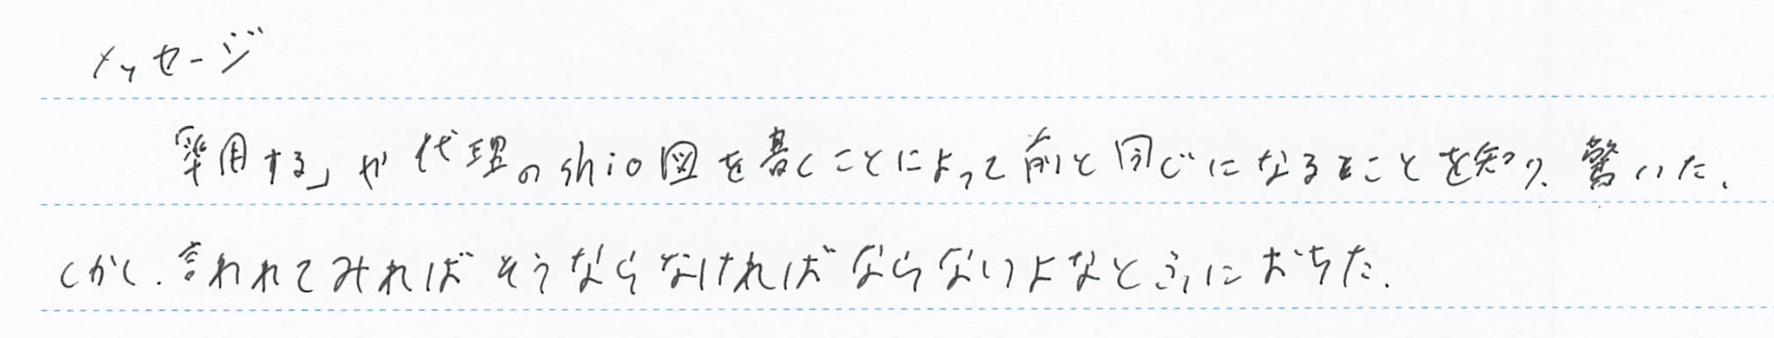 メッセージ
「準用する」や代理のshio図を書くことによって前と同じになることを知り、驚いた。
しかし、言われてみればそうならなければならないよなとふにおちた。